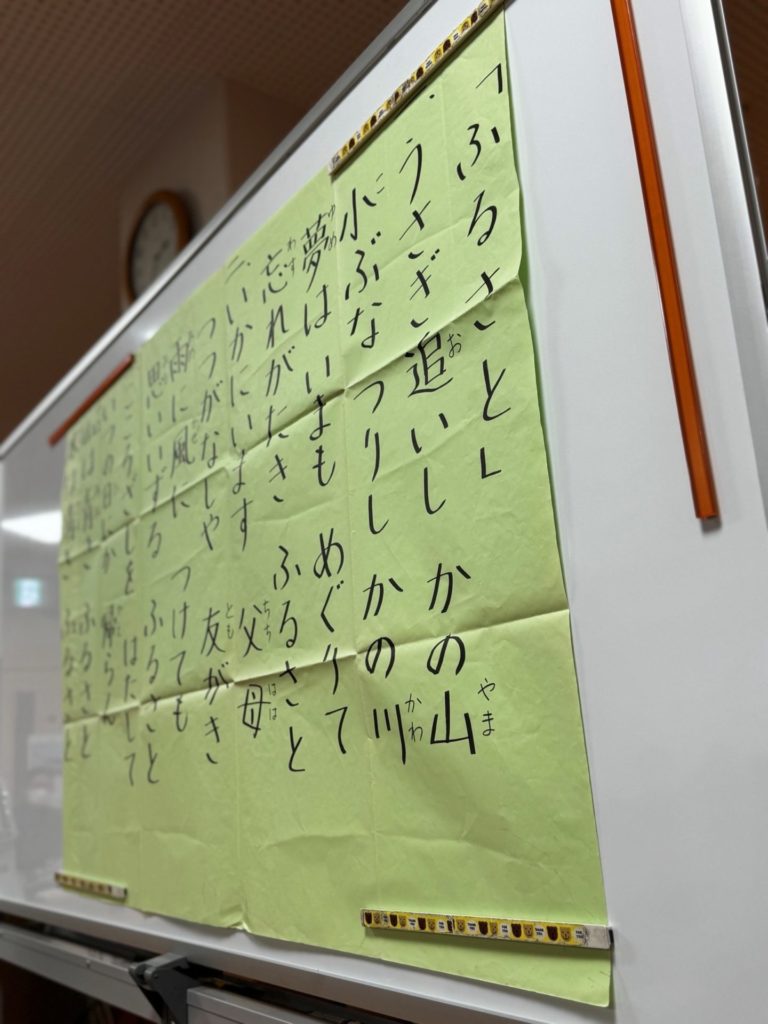 「ふるさと」
うさぎ追いし かの山
小ぶなつりし かの川
夢は いまも めぐりて
忘れがたき ふるさと
二、いかにいます 父母
つつがなしや 友がき
雨に風に つけても
思いいずる ふるさと
こころざしを はたして
いつの日にか 帰らん
山は青き ふるさと
水は清き ふるさと